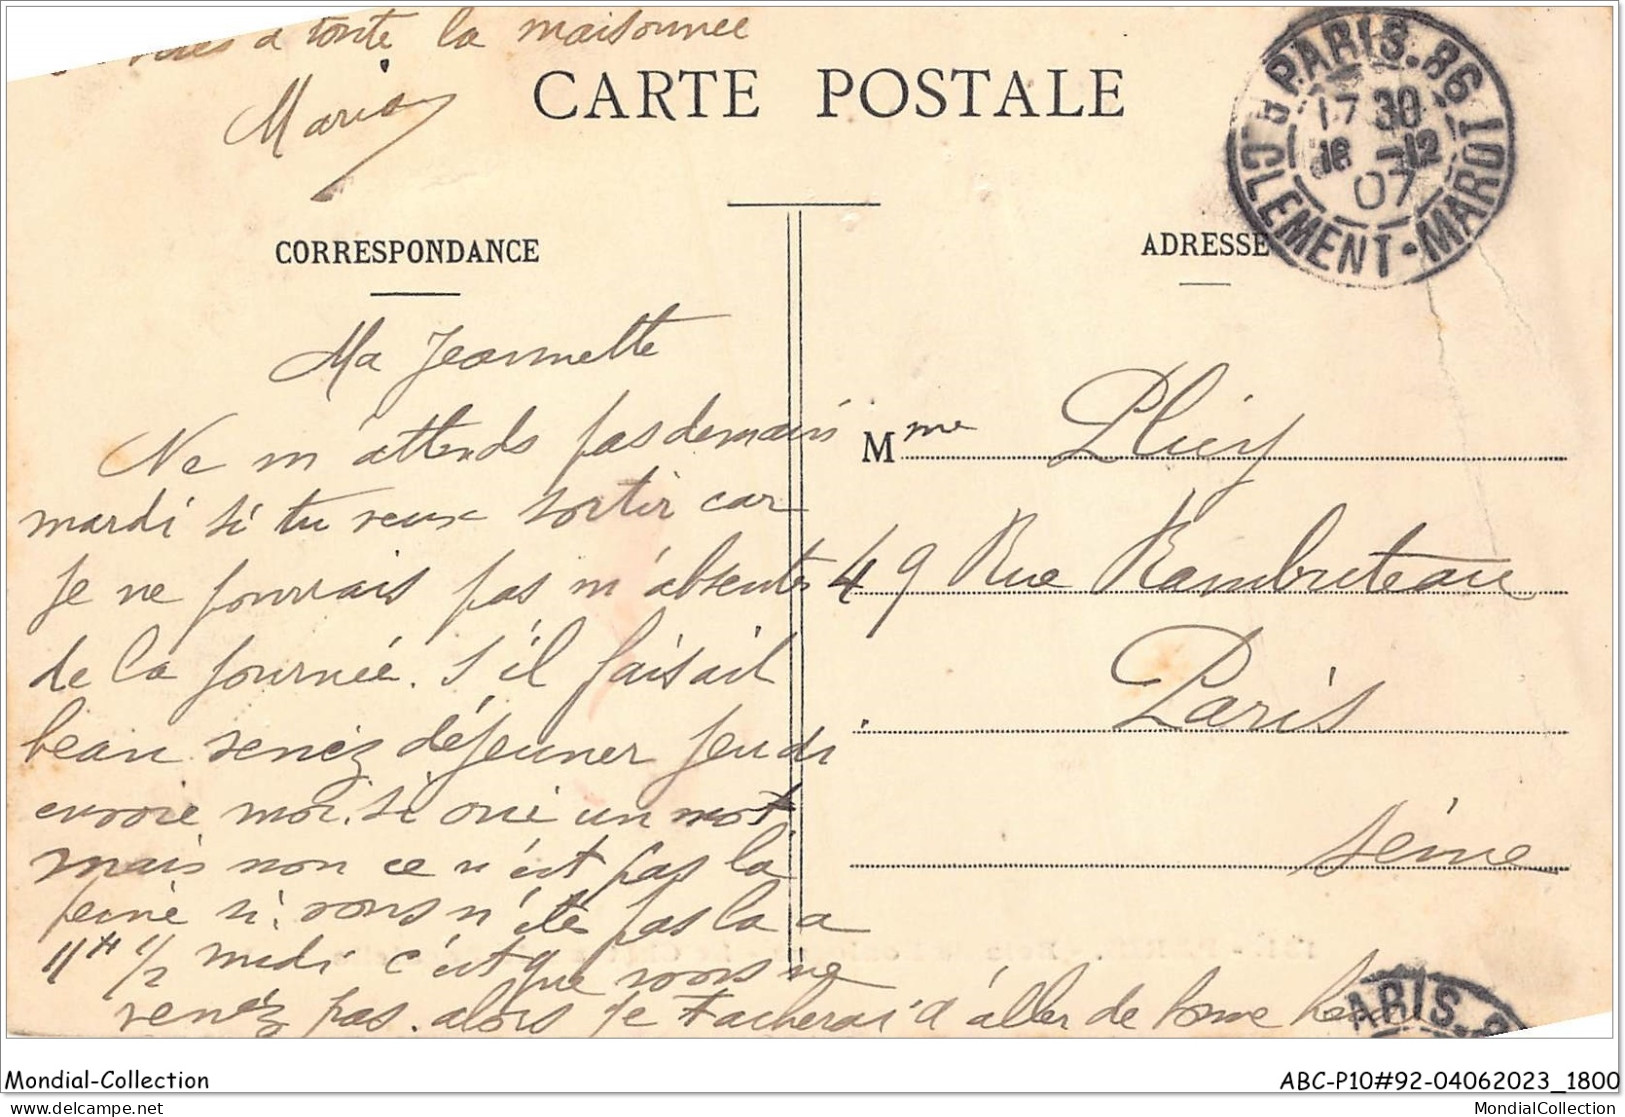 à toute la maisonnée
Maria
CARTE POSTALE
PARIS. 86
17 30
16 -12
07
CLEMENT-MAROT
CORRESPONDANCE
ADRESSE
Ma Jeannette
Ne m'attends pas demain
mardi si tu veux sortir car
je ne pourrais pas m'absenter
de la journée. S'il faisait
beau venez déjeuner jeudi
envoie moi. si oui un mot
mais non ce n'est pas la
peine si vous n'êtes pas la a
11H 1/2 midi c'est que vous ne
venez pas. alors je tacherai d'aller de bonne
Mme Pluey
49 Rue Rambuteau
Paris
Seine
ARIS
Mondial-Collection
ABC-P10#92-04062023_1800
www.delcampe.net
MondialCollection